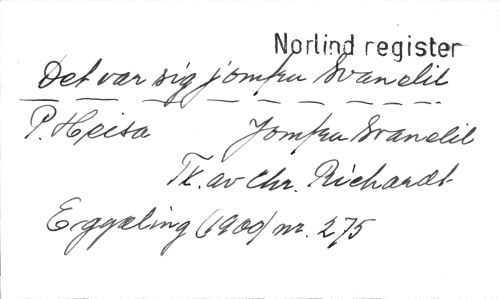 Norlind register
Det var sig jomfru Svanelil
P. Heise Jomfru Svanelil
Tk. av Chr. Richardt
Eggeling (1900) nr. 275